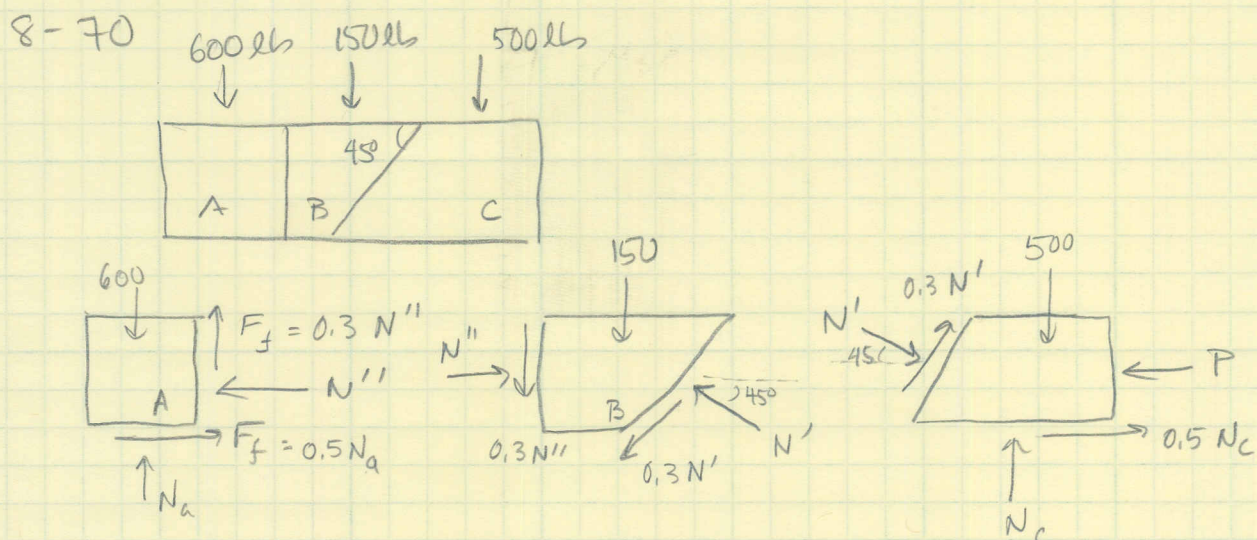 8-70
600 lbs 150 lbs 500 lbs
45°
A B C
600
F_f = 0.3 N''
N''
A
F_f = 0.5 N_a
N_a
150
N''
B
45°
0.3 N''
0.3 N'
N'
500
0.3 N'
N'
45°
P
0.5 N_c
N_c